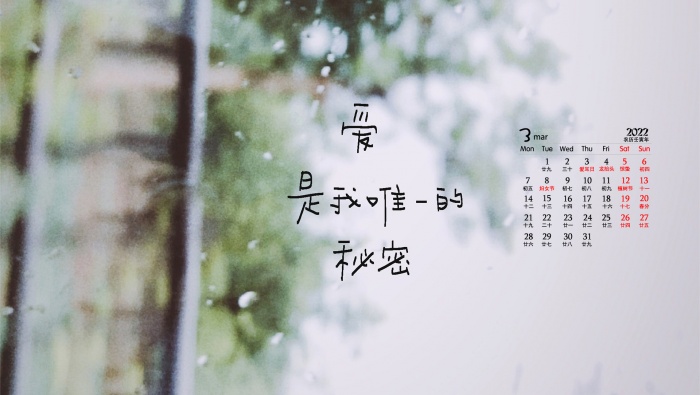 爱
是我唯一的
秘密
3 mar 2022
农历壬寅年
Mon Tue Wed Thu Fri Sat Sun
1 2 3 4 5 6
廿九 三十 爱耳日 龙抬头 惊蛰 初四
7 8 9 10 11 12 13
初五 妇女节 初七 初八 初九 植树节 十一
14 15 16 17 18 19 20
十二 十三 十四 十五 十六 十七 春分
21 22 23 24 25 26 27
十九 二十 廿一 廿二 廿三 廿四 廿五
28 29 30 31
廿六 廿七 廿八 廿九